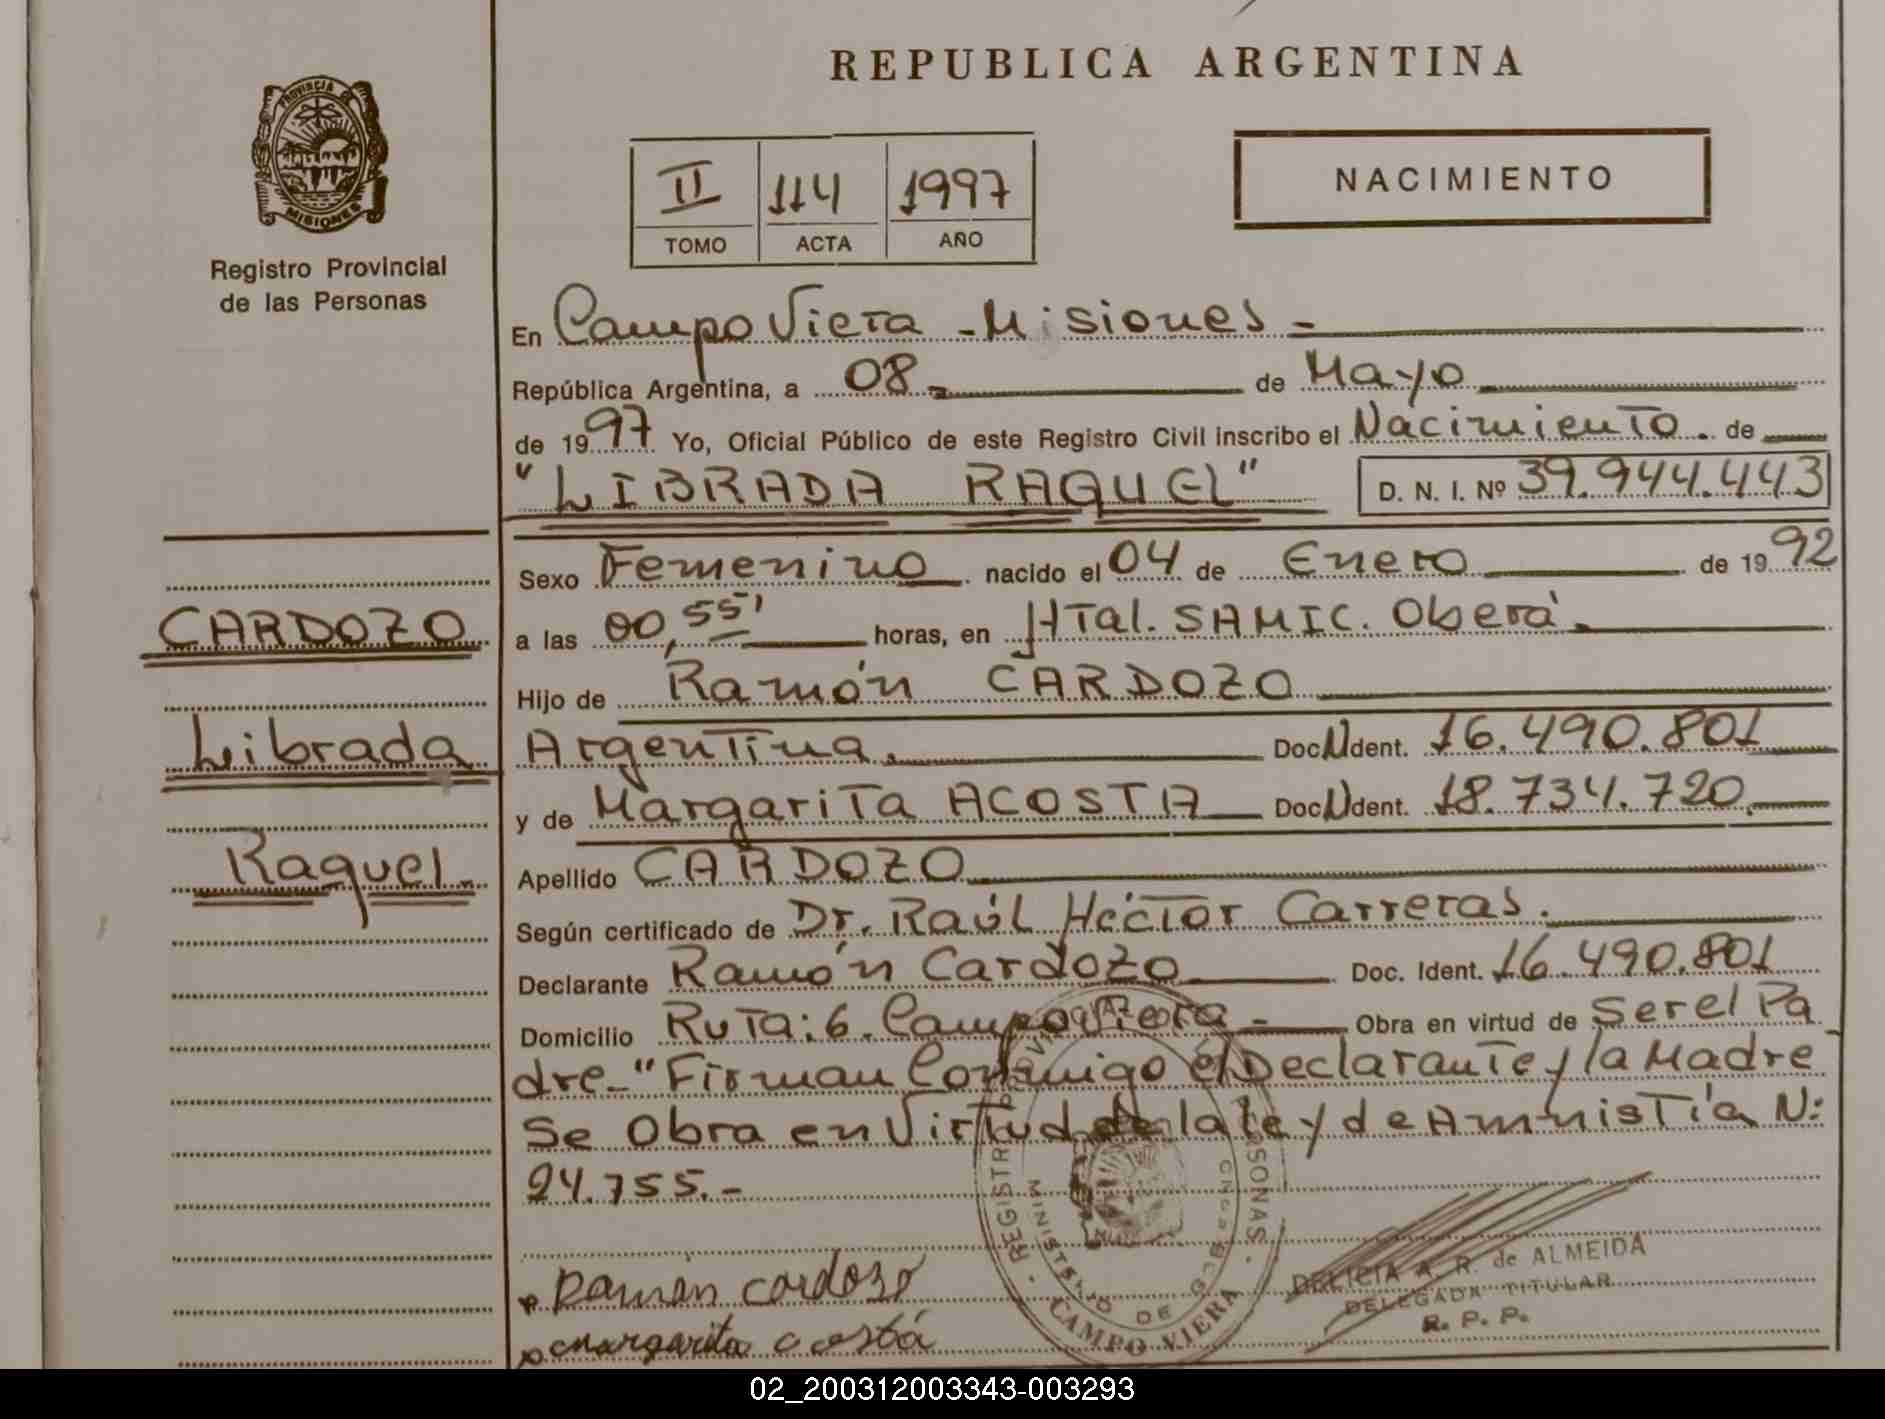 REPUBLICA ARGENTINA
PROVINCIA DE
MISIONES
Registro Provincial
de las Personas
II 114 1997
TOMO ACTA AÑO
NACIMIENTO
En Campo Viera - Misiones -
República Argentina, a 08 - de Mayo
de 1997 Yo, Oficial Público de este Registro Civil inscribo el Nacimiento. de
"LIBRADA RAQUEL" D. N. I. Nº 39.944.443
Sexo Femenino nacido el 04 de Enero de 1992
CARDOZO
a las 00,55' horas, en HTal. SAMIC. Oberá.
Hijo de Ramón CARDOZO
Librada
Argentina. Doc. Ident. 16.490.801
y de Margarita ACOSTA Doc. Ident. 18.734.720.
Raquel
Apellido CARDOZO
Según certificado de Dr. Raúl Héctor Carreras.
Declarante Ramón Cardozo Doc. Ident. 16.490.801
Domicilio Ruta: 6. Campo Viera - Obra en virtud de Ser el Pa
dre-"Firman Conmigo el Declarante y la Madre
Se Obra en Virtud de la ley de Amnistía N:
24.755.-
Ramón cardozo
margarita acosta
REGISTRO PERSONAS
MINISTERIO DE
CAMPO VIERA
DELICIA A. R. de ALMEIDA
DELEGADA TITULAR
R. P. P.
02_200312003343-003293